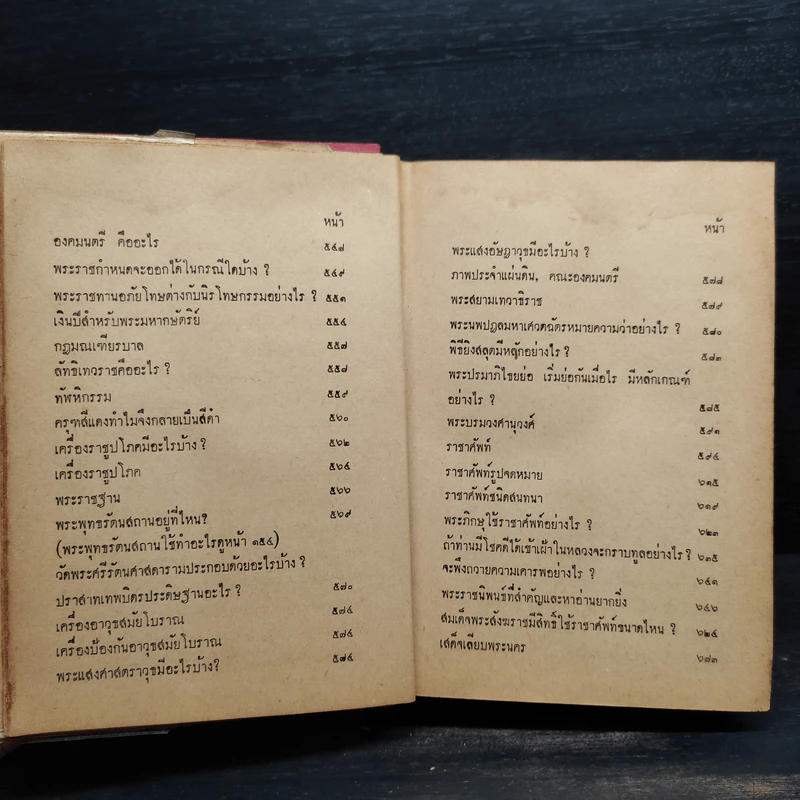 หน้า
องคมนตรี คืออะไร ๕๔๗
พระราชกำหนดจะออกได้ในกรณีใดบ้าง ? ๕๔๙
พระราชทานอภัยโทษต่างกับนิรโทษกรรมอย่างไร ? ๕๕๑
เงินปีสำหรับพระมหากษัตริย์ ๕๕๔
กฎมณเฑียรบาล ๕๕๗
ลัทธิเทวราชคืออะไร ? ๕๕๘
ทัฬหิกรรม ๕๕๙
ครุฑสีแดงทำไมจึงกลายเป็นสีดำ ๕๖๐
เครื่องราชูปโภคมีอะไรบ้าง ? ๕๖๒
เครื่องราชูปโภค ๕๖๔
พระราชฐาน ๕๖๖
พระพุทธรัตนสถานอยู่ที่ไหน? ๕๖๙
(พระพุทธรัตนสถานใช้ทำอะไรดูหน้า ๑๕๔)
วัดพระศรีรัตนศาสดารามประกอบด้วยอะไรบ้าง ?
ปราสาทเทพบิดรประดิษฐานอะไร ? ๕๗๐
เครื่องอาวุธสมัยโบราณ ๕๗๔
เครื่องป้องกันอาวุธสมัยโบราณ ๕๗๔
พระแสงศาสตราวุธมีอะไรบ้าง? ๕๗๔
หน้า
พระแสงอัษฎาวุธมีอะไรบ้าง ?
ภาพประจำแผ่นดิน, คณะองคมนตรี ๕๗๘
พระสยามเทวาธิราช ๕๗๙
พระนพปฎลมหาเศวตฉัตรหมายความว่าอย่างไร ? ๕๘๐
พิธียิงสลุตมีหลักอย่างไร ? ๕๘๓
พระปรมาภิไธยย่อ เริ่มย่อกันเมื่อไร มีหลักเกณฑ์
อย่างไร ? ๕๘๕
พระบรมวงศานุวงศ์ ๕๙๑
ราชาศัพท์ ๕๙๔
ราชาศัพท์รูปจดหมาย ๖๑๕
ราชาศัพท์ชนิดสนทนา ๖๑๙
พระภิกษุใช้ราชาศัพท์อย่างไร ? ๖๒๓
ถ้าท่านมีโชคดีได้เข้าเฝ้าในหลวงจะกราบทูลอย่างไร ? ๖๓๕
จะพึงถวายความเคารพอย่างไร ? ๖๔๑
พระราชนิพนธ์ที่สำคัญและหาอ่านยากยิ่ง ๖๔๖
สมเด็จพระสังฆราชมีสิทธิ์ใช้ราชาศัพท์ขนาดไหน ? ๖๒๕
เสด็จเลียบพระนคร ๖๗๓